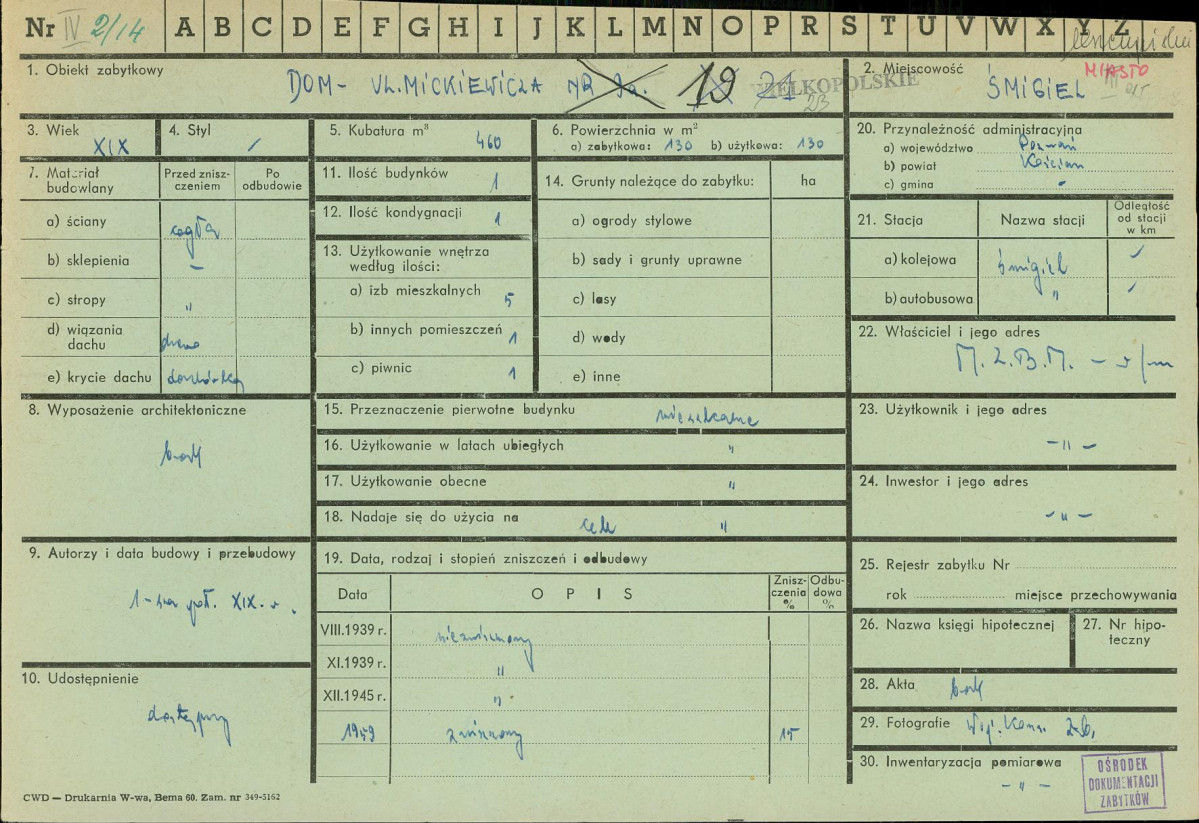 Nr IV 2/14 A B C D E F G H I J K L M N O P R S T U V W X Y Z
1. Obiekt zabytkowy DOM- UL. MICKIEWICZA NR 9a. 19 21 23
WIELKOPOLSKIE
2. Miejscowość ŚMIGIEL
MIASTO
3. Wiek XIX
4. Styl /
5. Kubatura m³ 460
6. Powierzchnia w m²
a) zabytkowa: 130 b) użytkowa: 130
20. Przynależność administracyjna
a) województwo Poznań
b) powiat Kościan
c) gmina -
7. Materiał budowlany
Przed zniszczeniem
Po odbudowie
a) ściany cegła
b) sklepienia -
c) stropy "
d) wiązania dachu drewno
e) krycie dachu dachówka
11. Ilość budynków 1
12. Ilość kondygnacji 1
13. Użytkowanie wnętrza według ilości:
a) izb mieszkalnych 5
b) innych pomieszczeń 1
c) piwnic 1
14. Grunty należące do zabytku: ha
a) ogrody stylowe
b) sady i grunty uprawne
c) lasy
d) wody
e) inne
21. Stacja Nazwa stacji Odległość od stacji w km
a) kolejowa Śmigiel /
b) autobusowa " /
22. Właściciel i jego adres
M.Z.B.M. - w/m
8. Wyposażenie architektoniczne
brak
15. Przeznaczenie pierwotne budynku mieszkalne
16. Użytkowanie w latach ubiegłych "
17. Użytkowanie obecne "
18. Nadaje się do użycia na cele "
23. Użytkownik i jego adres
- " -
24. Inwestor i jego adres
- " -
9. Autorzy i data budowy i przebudowy
1-sza poł. XIX. w.
19. Data, rodzaj i stopień zniszczeń i odbudowy
Data OPIS Zniszczenia % Odbudowa %
VIII.1939 r. niezniszczony
XI.1939 r. "
XII.1945 r. "
1959 zniszczony 15
25. Rejestr zabytku Nr
rok miejsce przechowywania
26. Nazwa księgi hipotecznej
27. Nr hipoteczny
10. Udostępnienie
dostępny
28. Akta brak
29. Fotografie Woj. Kons. Zab.
30. Inwentaryzacja pomiarowa
- " -
OŚRODEK
DOKUMENTACJI
ZABYTKÓW
CWD — Drukarnia W-wa, Bema 60. Zam. nr 349-5162